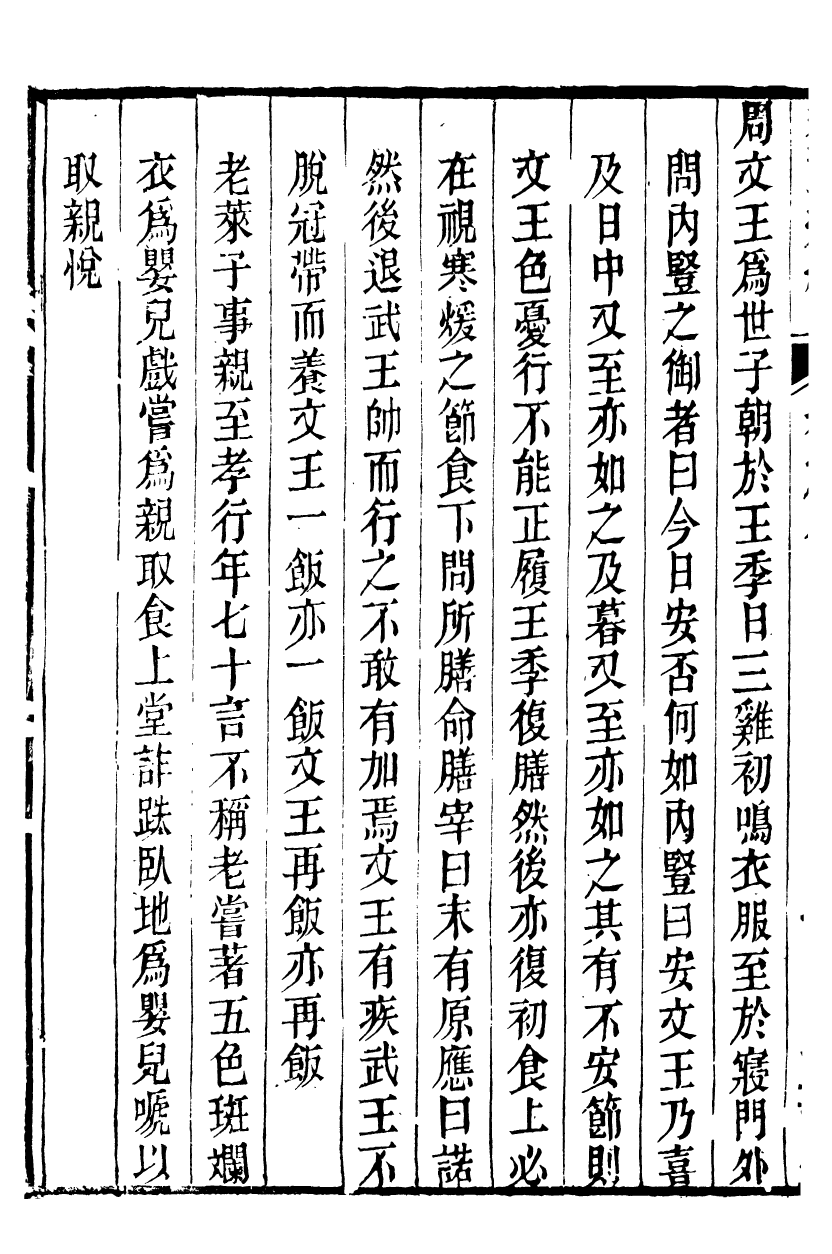 周文王爲世子朝於王季日三雞初鳴衣服至於寢門外
問內豎之御者曰今日安否何如內豎曰安文王乃喜
及日中又至亦如之及暮又至亦如之其有不安節則
文王色憂行不能正履王季復膳然後亦復初食上必
在視寒煖之節食下問所膳命膳宰曰末有原應曰諾
然後退武王帥而行之不敢有加焉文王有疾武王不
脫冠帶而養文王一飯亦一飯文王再飯亦再飯
老萊子事親至孝行年七十言不稱老嘗著五色斑斕
衣爲嬰兒戲嘗爲親取食上堂詐跌臥地爲嬰兒嗁以
取親悅